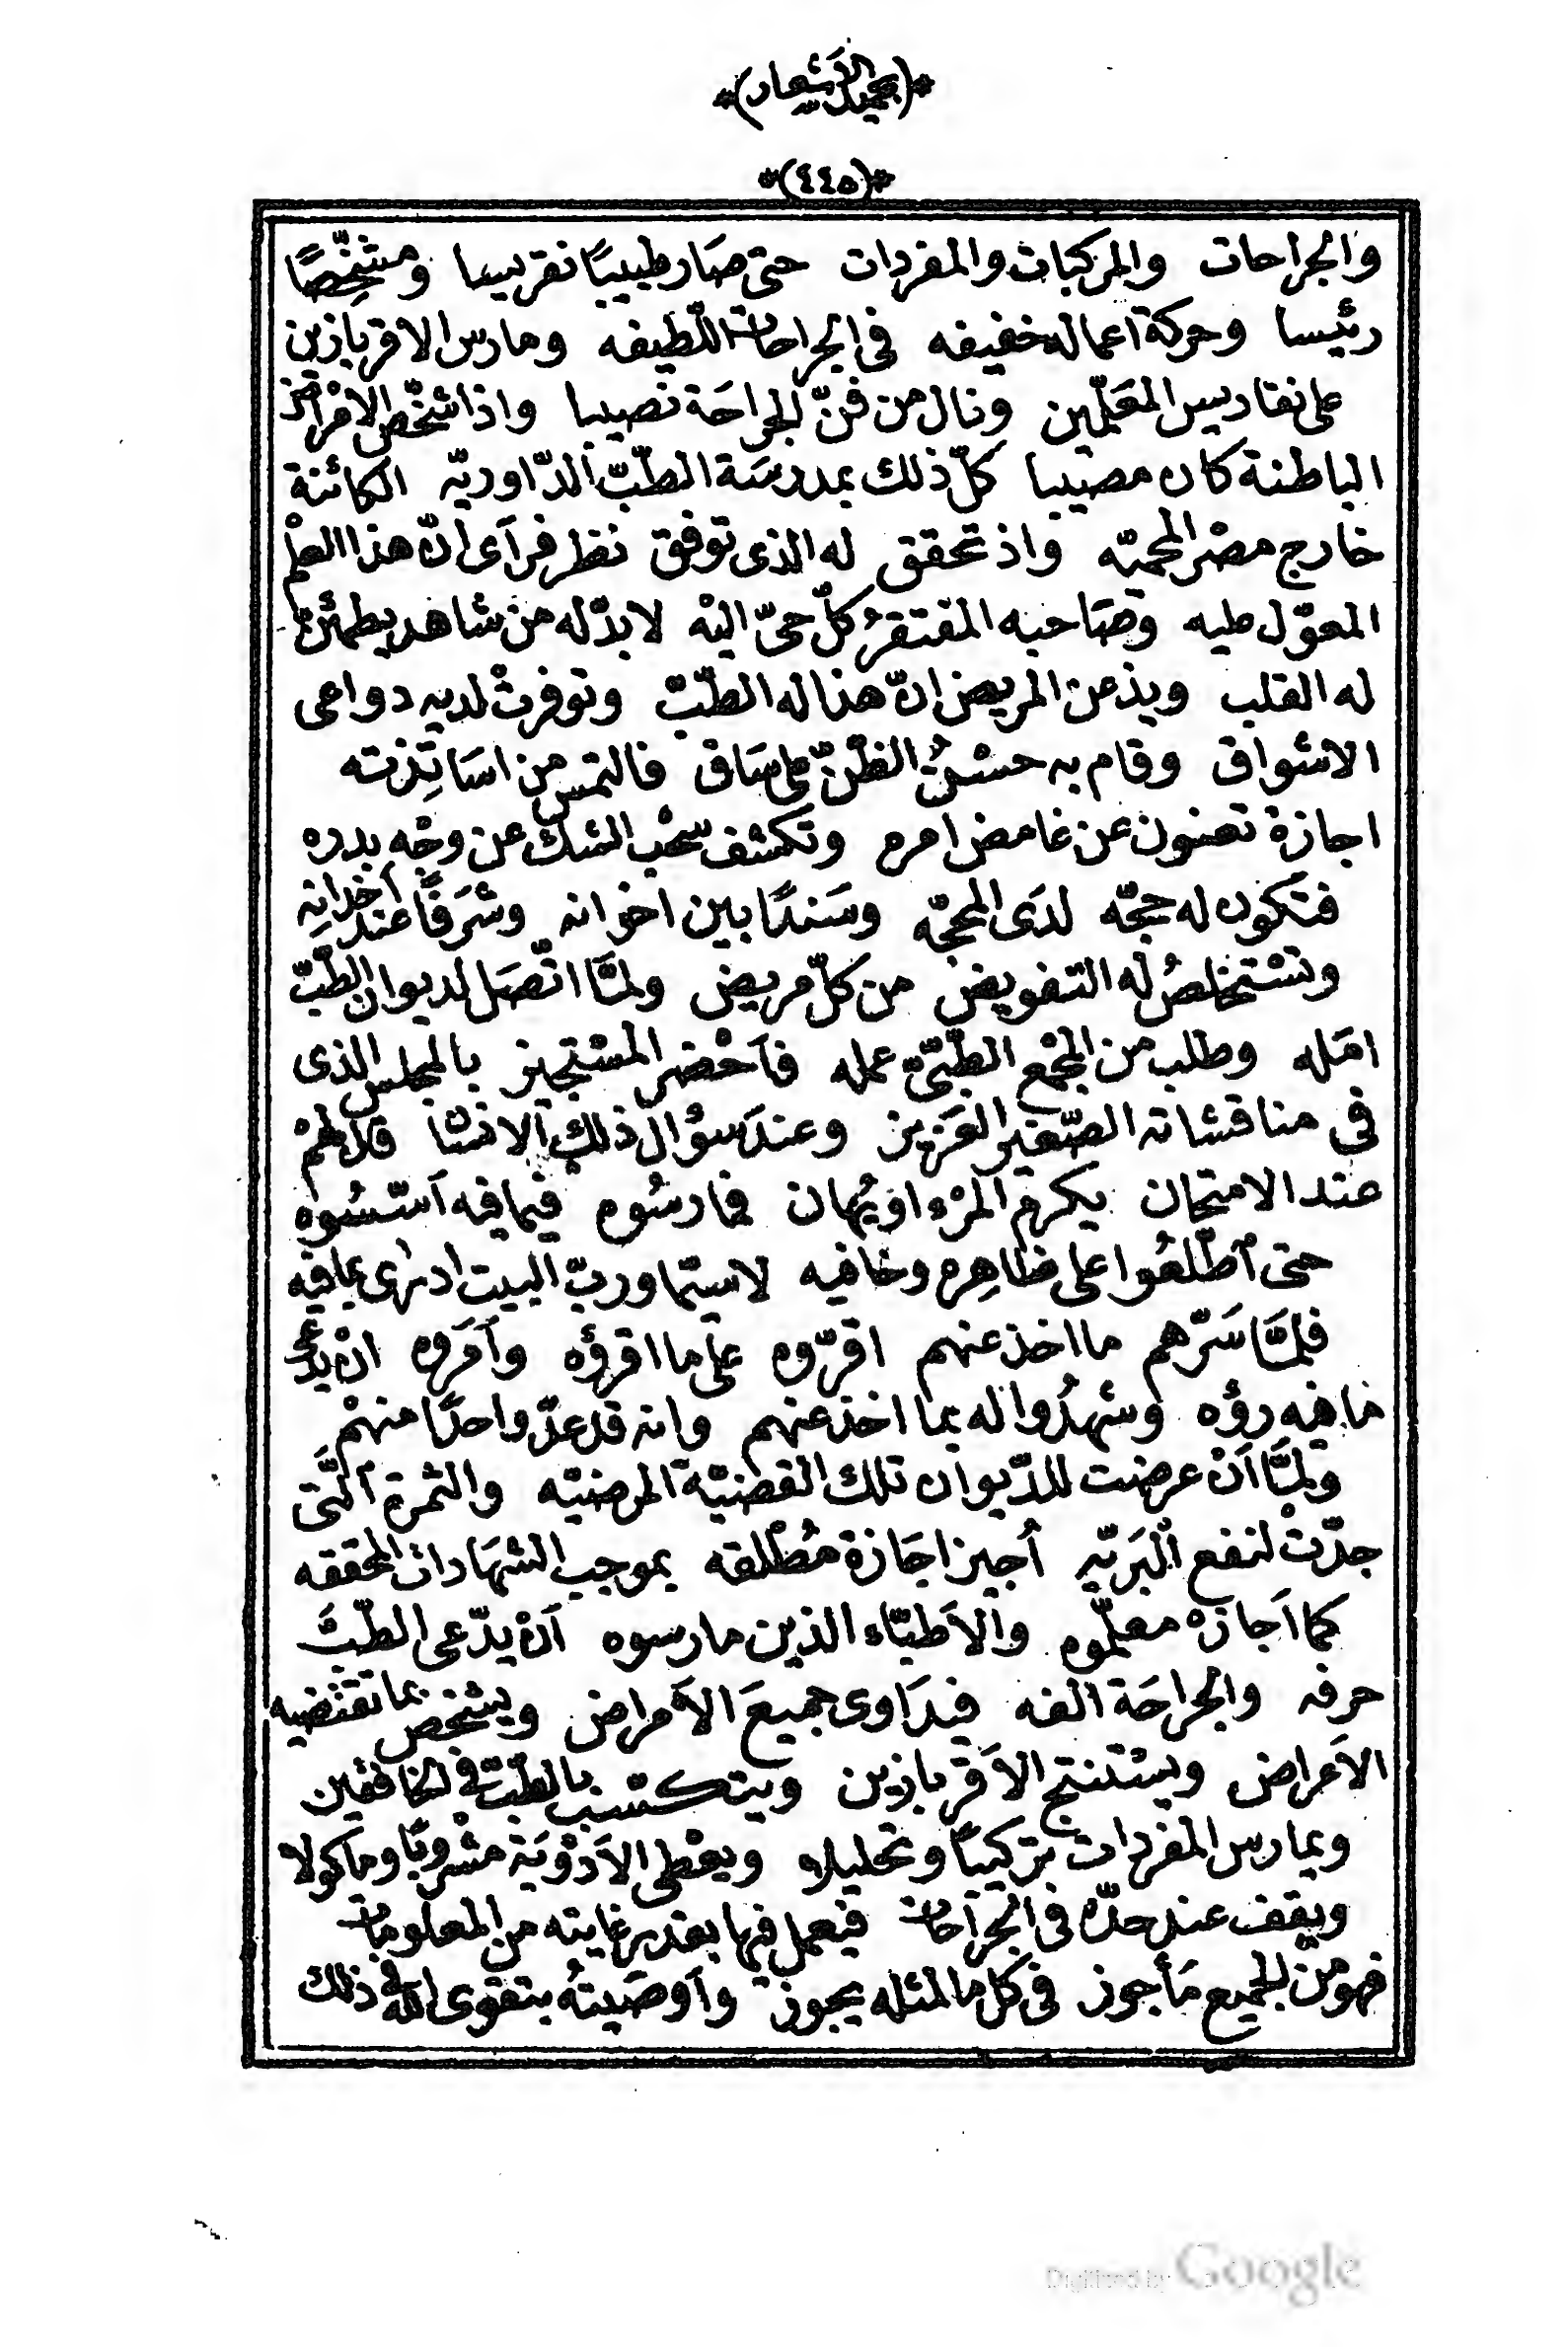 *(بجميل الأشعار)*
*(٤٤٥)*
والجراحات والمركبات والمفردات حتى صَار طبيبًا نقريسا ومشخّصًا
رئيسا وحركة اعماله خفيفه فى الجراحات اللّطيفه ومارس الاقرباذين
على نقاريس المعَلّمين ونال من فنّ الجراحَة نصيبا واذا شخّص الامْراض
الباطنة كان مصيبا كلّ ذلك بمدرسَة الطّبّ الدّاوريّه الكائنة
خارج مصْر المحميّه واذ تحقق له الذى توفق نظر فرآى انّ هذا العلْم
المعوّل عليه وصَاحبه المفتقرُ كلّ حىّ اليْه لا بدّ له من شاهد يطمئنّ
له القلب ويذعن المريض انّ هذا له الطّبّ وتوفرتْ لديه دواعى
الاشواق وقام به حسْنُ الظّنّ على سَاق فالتمس من اسَاتِذته
اجازة تعنون عن غامض امره وتكشف سحْب الشك عن وجْه بدره
فتكون له حجّه لدَى المحجّه وسَندًا بين اخوانه وشرَفًا عند أخدانِه
وتسْتخلصُ له التفويض من كلّ مريض ولمّا اتّصَل لديوان الطّبّ
امَله وطلب من المجْمع الطّبّىّ عمله فآحْضر المسْتجيز بالمجلس الذى
فى مناقشاته الصّغير العَزيز وعندَ سؤال ذلك الانشا قلا لهمْ
عند الامتحان يكرم المرْء او يُهان فمارسُوه فيما فيه آسّسُوه
حتى اطّلعُوا على ظاهِره وخافيه لاسيّما وربّ البيت ادرى بما فيه
فلمّا سَرّهم ما اخذ عنهم اقرّوه على ما اقرؤه وآمَروه ان يدّعى
ما فيه رؤه وشهدُوا له بما اخذ عنهم وانه قد عدّ واحدًا منهمْ
ولمّا آنْ عرضت للدّيوان تلك القضيّة المرضيّه والثمرة الّتى
جدّتْ لنفع البَريّه أجيز اجَازة مُطْلقه بموجب الشهَادات المحققه
كما اَجازهْ معلّموه والاَطبّاء الذين مارسوه آن يدّعى الطّبَّ
حرفه والجراحَة الفه فيدَاوى جميعَ الاَمراض ويشخص بما تقتضيه
الاَعراض ويسْتنتج الاَقرباذين ويتكسّب بالطّبّ فى الخافقين
ويمارس المفردات تركيبًا وتحليلا ويعْطى الاَدْوِيَة مشْروبًا وماكولا
ويقف عند حدّه فى الجراحات فيعمل فيها بقدر غايته من المعلومات
فهو من الجميع مَأجوز فى كل ما لمثله يجوز وآوصَيتهُ بتقوى الله فى ذلك
Digitized by Google